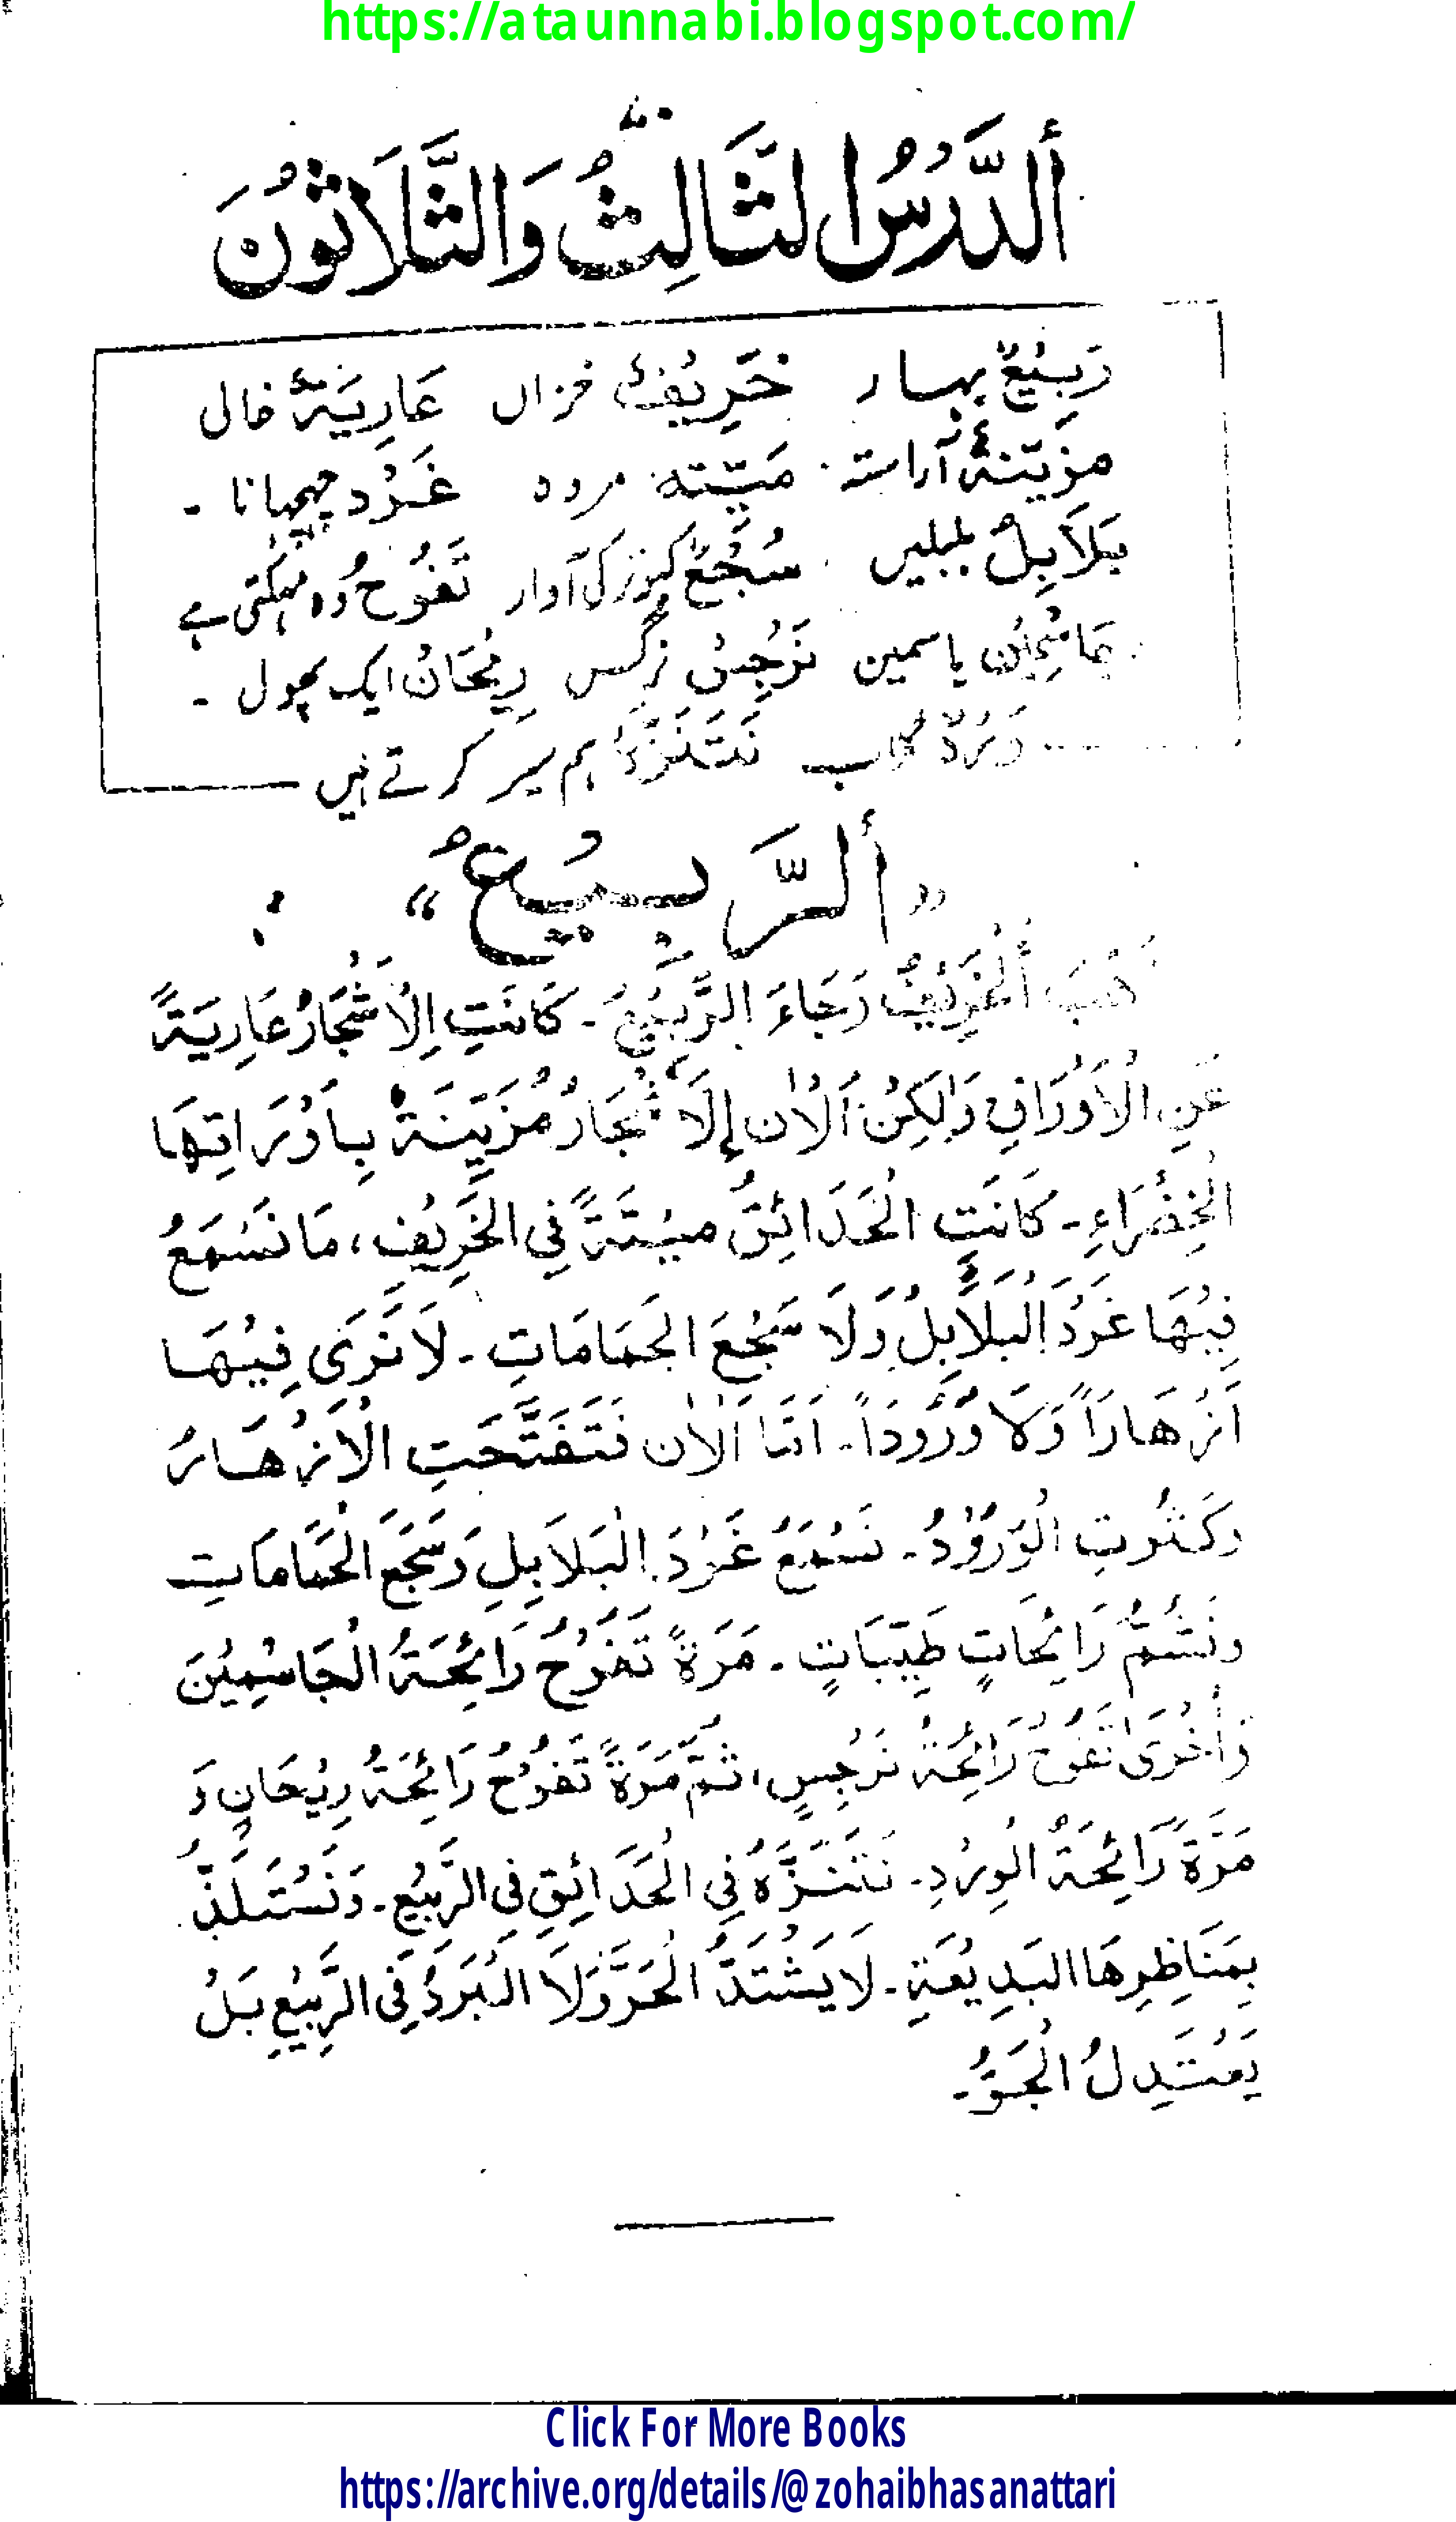 https://ataunnabi.blogspot.com/
أَلدَّرْسُ الثَّالِثُ وَالثَّلَاثُونَ
رَبِيْعٌ بہار خَرِيْفٌ خزاں عَارِيَةٌ خالی
مزيّنةٌ آراستہ مَيّتتہ مردہ غَرْد چہچہانا ۔
بَلَابِلُ بلبلیں سُجَّعٌ کبوتر کی آواز تَفُوْحُ وہ مہکتی ہے
جاسْمِيْن یاسمین نَرْجِسْ نرگس رِيْحَانْ ایک پھول ۔
وَرْدٌ گلاب نَتَنَزَّهُ ہم سیر کرتے ہیں
„أَلرَّبِيْعُ“
ذَهَبَ أَلْخَرِيْفُ وَجَاءَ الرَّبِيْعُ ۔ كَانَتِ الْأَشْجَارُ عَارِيَةً
عَنِ الْأَوْرَاقِ وَلٰكِنْ اَلْاٰن إِلَاشْجَارُ مُزَيِّنَةٌ بِأَوْرَاقِهَا
الْخِضْرَاءِ ۔ كَانَتِ الْحَدَائِقُ مَيْتَةً فِي الْخَرِيْفِ ، مَا نَسْمَعُ
فِيْهَا غَرْدَ الْبَلَابِلِ وَلَا سَجْعَ الْحَمَامَاتِ ۔ لَا نَرَى فِيْهَا
اَزْهَارَاً وَلَا وُرُودَاً ۔ اَمَّا اَلْاٰن فَتَفَتَّحَتِ الْاَزْهَارُ
وَكَثُرتِ الْوُرُوْدُ ۔ نَسْمَعُ غَرْدَ الْبَلَابِلِ وَسَجْعَ الْحَمَامَاتِ
وَنَشُمُّ رَائِحَاتٍ طَيِّبَاتٍ ۔ مَرَةً تَفُوْحُ رَائِحَةُ الْجَاسْمِيْنَ
وَأُخْرَى تَفُوْحُ رَائِحَةُ نَرْجِسٍ ، ثُمَّ مَرَةً تَفُوْحُ رَائِحَةُ رِيْحَانٍ وَ
مَرَّةً رَائِحَةُ الْوِرْدِ ۔ نَتَنَزَّهُ فِي الْحَدَائِقِ فِي الرَّبِيْعِ ۔ وَنَسْتَلَذُّ
بِمَنَاظِرِهَا البَدِيْعَةِ ۔ لَا يَشْتَدُّ الْحَرُّ وَلَا الْبَرَدُ فِي الرَّبِيْعِ بَلْ
يَعْتَدِلُ الْجَوُّ ۔
Click For More Books
https://archive.org/details/@zohaibhasanattari